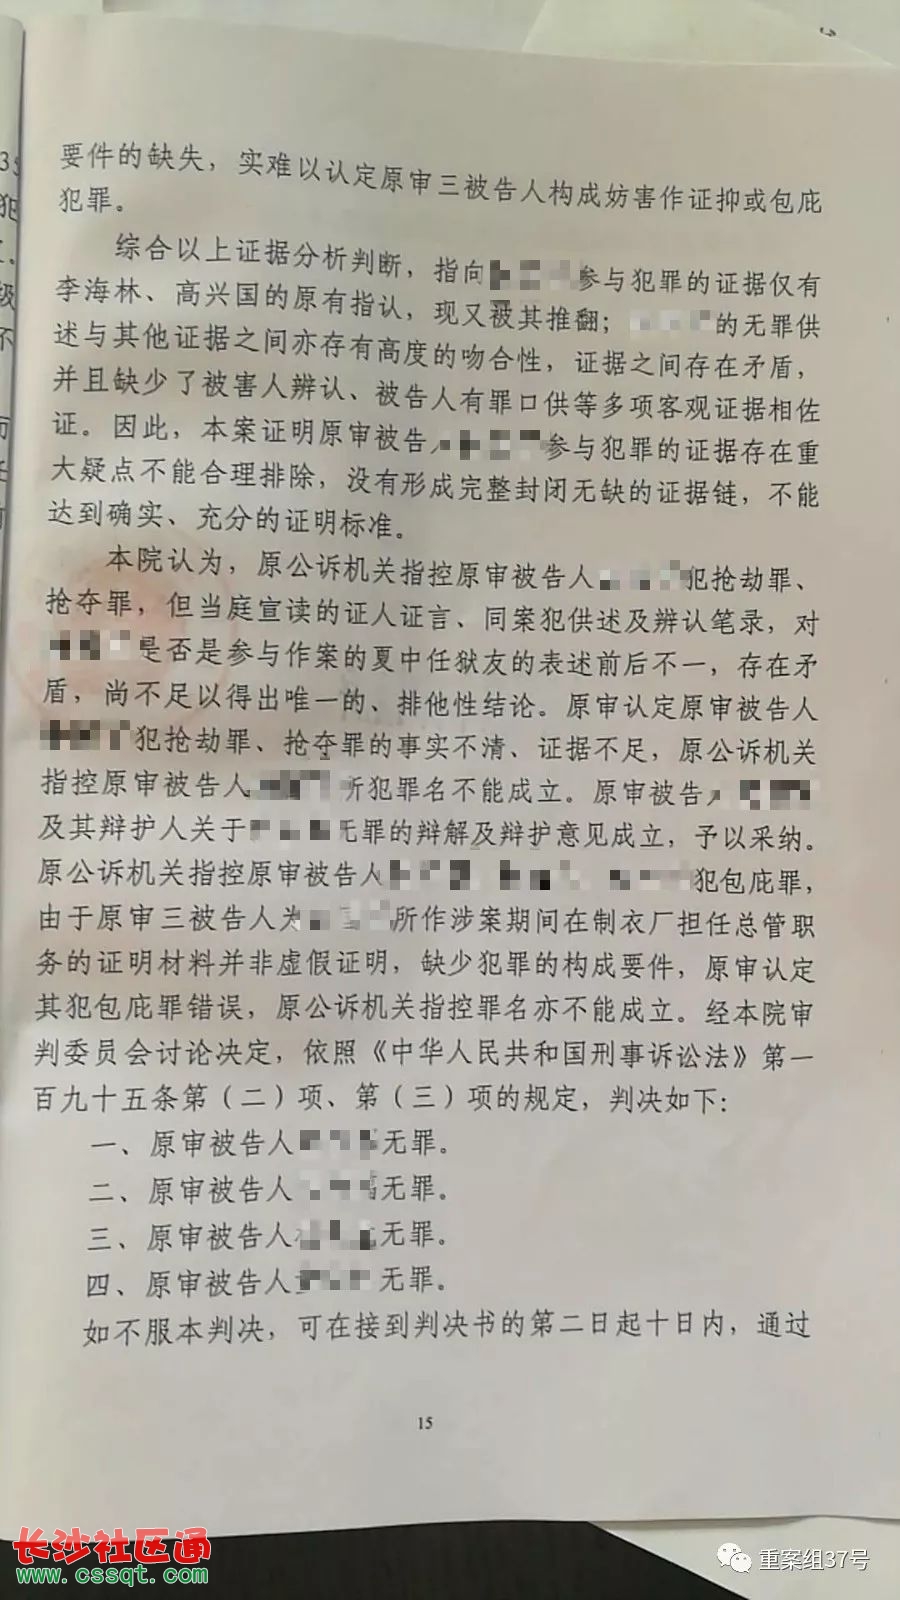 要件的缺失，实难以认定原审三被告人构成妨害作证抑或包庇
犯罪。
综合以上证据分析判断，指向参与犯罪的证据仅有
李海林、高兴国的原有指认，现又被其推翻；的无罪供
述与其他证据之间亦存有高度的吻合性，证据之间存在矛盾，
并且缺少了被害人辨认、被告人有罪口供等多项客观证据相佐
证。因此，本案证明原审被告人参与犯罪的证据存在重
大疑点不能合理排除，没有形成完整封闭无缺的证据链，不能
达到确实、充分的证明标准。
本院认为，原公诉机关指控原审被告人犯抢劫罪、
抢夺罪，但当庭宣读的证人证言、同案犯供述及辨认笔录，对
是否是参与作案的夏中任狱友的表述前后不一，存在矛
盾，尚不足以得出唯一的、排他性结论。原审认定原审被告人
犯抢劫罪、抢夺罪的事实不清、证据不足，原公诉机关
指控原审被告人所犯罪名不能成立。原审被告人
及其辩护人关于无罪的辩解及辩护意见成立，予以采纳。
原公诉机关指控原审被告人犯包庇罪，
由于原审三被告人为所作涉案期间在制衣厂担任总管职
务的证明材料并非虚假证明，缺少犯罪的构成要件，原审认定
其犯包庇罪错误，原公诉机关指控罪名亦不能成立。经本院审
判委员会讨论决定，依照《中华人民共和国刑事诉讼法》第一
百九十五条第（二）项、第（三）项的规定，判决如下：
一、原审被告人无罪。
二、原审被告人无罪。
三、原审被告人无罪。
四、原审被告人无罪。
如不服本判决，可在接到判决书的第二日起十日内，通过
15
长沙社区通
www.cssqt.com
重案组37号